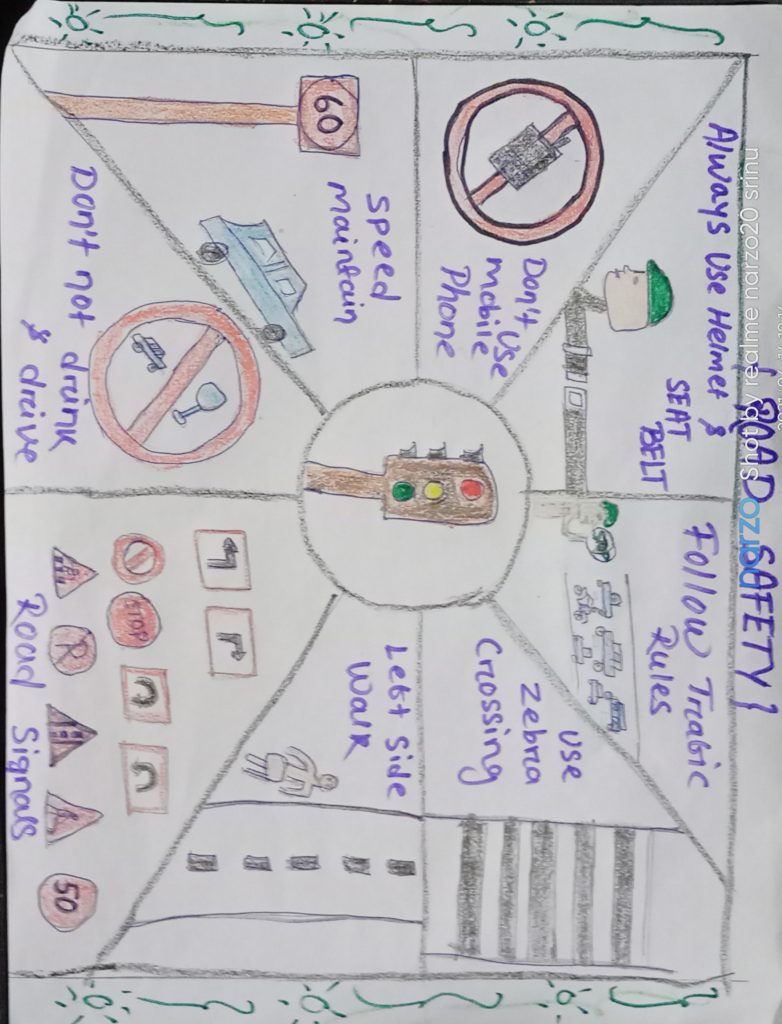 { ROAD SAFETY }
Always Use Helmet &
SEAT
BELT
Follow Trabic
Rules
Don't Use
mobile
Phone
Use
Zebra
Crossing
60
Speed
maintain
Lebt Side
Walk
Don't not drink
& drive
STOP
R
50
Road Signals
narzo
Shot by realme narzo20 srinu